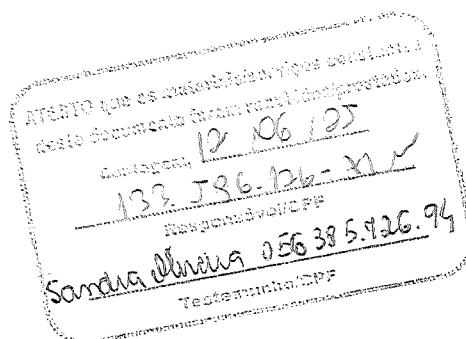 ATESTO que os materiais/serviços constantes
deste documento foram recebidos/prestados.
Contagem, 12 / 06 / 25
133.586.126-
Responsável/CPF
Sandra Oliveira 056385.426.94
Testemunha/CPF